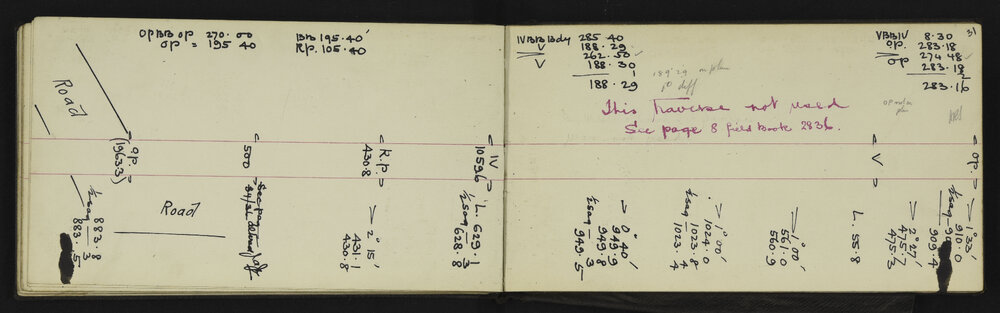 OP BB OP 270·00
OP = 195 40
BB 195·40'
R.P. 105·40
Road
O.P.
(1963·3)
500
R.P.
430·8
IV
1059·6
½ sag 883·8
3
883·5
Road
See page
2° 15'
431·1
430·8
L. 629·1
½ sag 3
628·8
IV BB Bdy 285·40
V 188·29
262·50
V 188·30
1
188·29
189°29
diff
This Traverse not used
See page 8 field Book 2836.
31
V BB IV 8·30
OP. 283·18
274 48
OP 283·18
2
283·16
V
OP.
0° 40'
949·9
949·8
½ sag 3
949·5
1° 00'
1024·0
1023·8
½ sag 4
1023·4
1° 00'
561·0
560·9
L. 55·8
2° 27'
475·7
475·3
1° 33'
910·0
½ sag
909·4